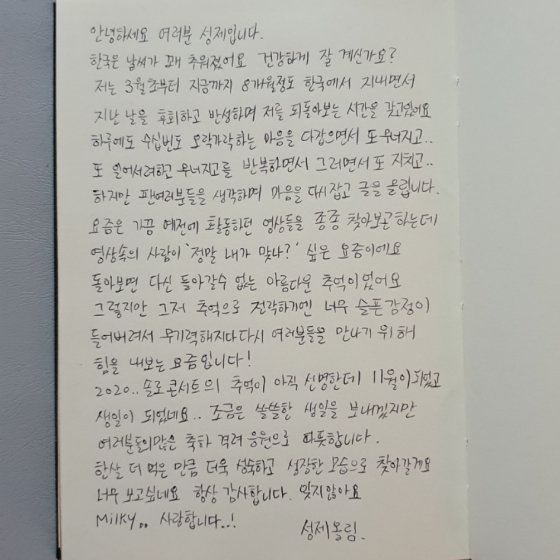 안녕하세요 여러분 성제입니다.
한국은 날씨가 꽤 추워졌어요 건강하게 잘 계신가요?
저는 3월초부터 지금까지 8개월정도 한국에서 지내면서
지난 날을 후회하고 반성하며 저를 되돌아보는 시간을 갖고있네요
하루에도 수십번도 오락가락하는 마음을 다잡으면서 또 무너지고..
또 일어서려하고 무너지고를 반복하면서 그러면서 또 지치고..
하지만 팬여러분들을 생각하며 마음을 다시잡고 글을 올립니다.
요즘은 가끔 예전에 활동하던 영상들을 종종 찾아보곤하는데
영상속의 사람이 '정말 내가 맞나?' 싶은 요즘이에요
돌아보면 다신 돌아갈수 없는 아름다운 추억이었어요
그렇지만 그저 추억으로 전락하기엔 너무 슬픈감정이
들어버려서 무기력해지다 다시 여러분들을 만나기 위해
힘을 내보는 요즘입니다!
2020.. 솔로콘서트의 추억이 아직 선명한데 11월이 되었고
생일이 되었네요.. 조금은 쓸쓸한 생일을 보내겠지만
여러분들의많은 축하 격려 응원으로 따뜻합니다.
한살 더 먹은 만큼 더욱 성숙하고 성장한 모습으로 찾아갈게요
너무 보고싶네요 항상 감사합니다. 잊지않아요
Milky.. 사랑합니다..!
성제올림.